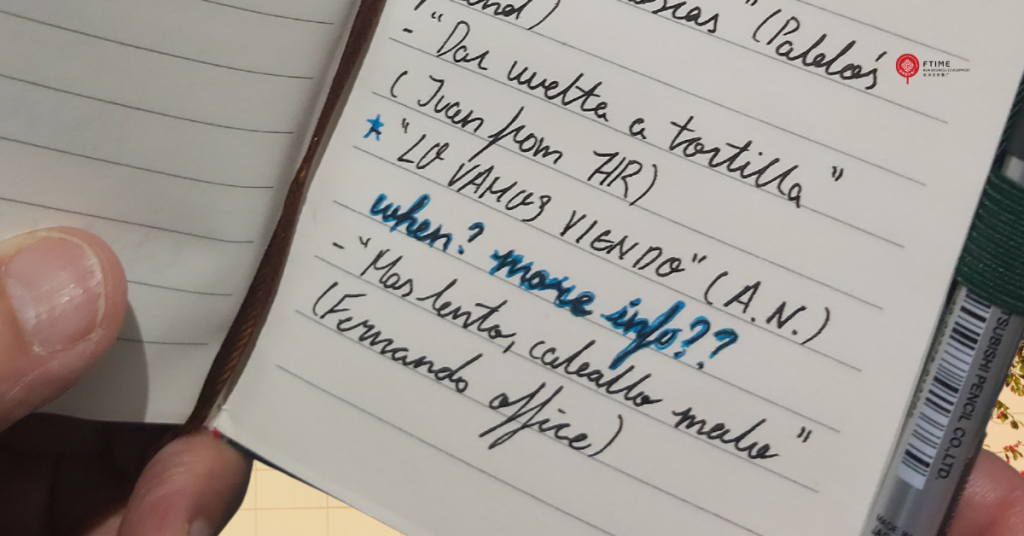 " (Pablo's
- "Dar vuelta a tortilla"
(Juan from HR)
* "LO VAMOS VIENDO" (A.N.)
when? more info??
- "Mas lento, caballo malo"
(Fernando office)
FTIME
TSUBISHI PENCIL CO.,LTD.
MADE